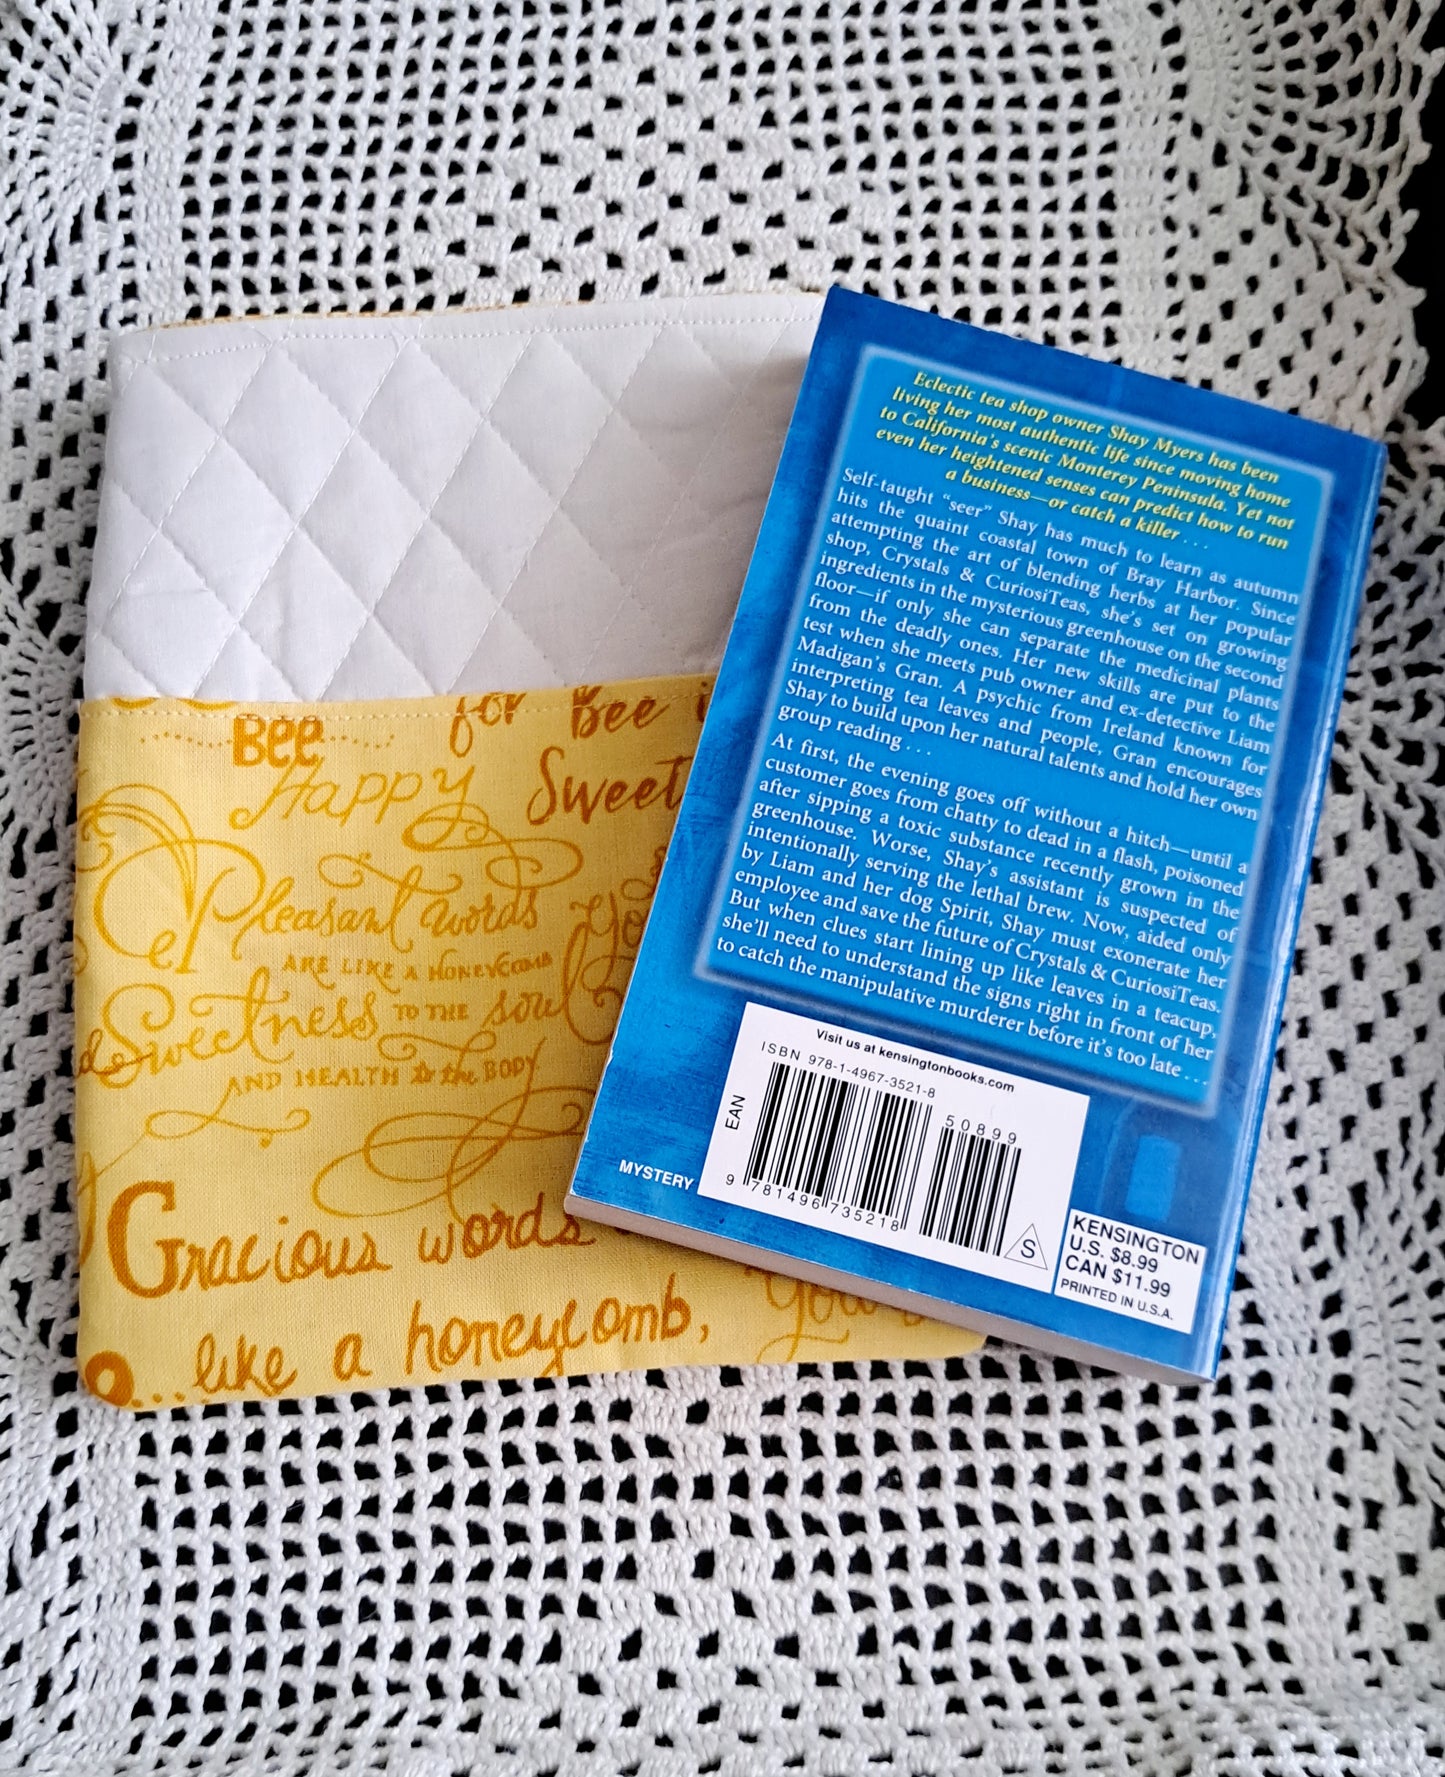 BEE
for Bee
Happy
Sweet
Pleasant words
ARE LIKE A HONEYCOMB
Sweetness TO THE soul
AND HEALTH to the BODY
Gracious words
like a honeycomb,
Eclectic tea shop owner Shay Myers has been
living her most authentic life since moving home
to California's scenic Monterey Peninsula. Yet not
even her heightened senses can predict how to run
a business—or catch a killer . . .
Self-taught “seer” Shay has much to learn as autumn
hits the quaint coastal town of Bray Harbor. Since
attempting the art of blending herbs at her popular
shop, Crystals & CuriosiTeas, she's set on growing
ingredients in the mysterious greenhouse on the second
floor—if only she can separate the medicinal plants
from the deadly ones. Her new skills are put to the
test when she meets pub owner and ex-detective Liam
Madigan's Gran. A psychic from Ireland known for
interpreting tea leaves and people, Gran encourages
Shay to build upon her natural talents and hold her own
group reading . . .
At first, the evening goes off without a hitch—until a
customer goes from chatty to dead in a flash, poisoned
after sipping a toxic substance recently grown in the
greenhouse. Worse, Shay's assistant is suspected of
intentionally serving the lethal brew. Now, aided only
by Liam and her dog Spirit, Shay must exonerate her
employee and save the future of Crystals & CuriosiTeas.
But when clues start lining up like leaves in a teacup,
she'll need to understand the signs right in front of her
to catch the manipulative murderer before it's too late . . .
Visit us at kensingtonbooks.com
ISBN 978-1-4967-3521-8
50899
EAN
9 781496 735218
S
MYSTERY
KENSINGTON
U.S. $8.99
CAN $11.99
PRINTED IN U.S.A.